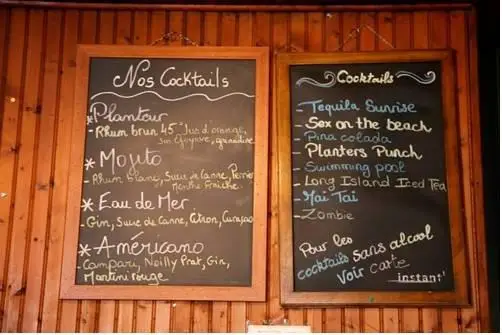 Nos Cocktails
* Planteur
- Rhum brun 45° Jus d'orange,
Jus Goyave, grenadine
* Mojito
- Rhum blanc, Sucre de canne, Perrier
Menthe fraîche.
* Eau de Mer.
- Gin, Sucre de Canne, Citron, Curaçao
* Américano
- Campari, Noilly Prat, Gin,
Martini rouge
Cocktails
- Tequila Sunrise
- Sex on the beach
- Pina colada
- Planters Punch
- Swimming pool
- Long Island Iced Tea
- Mai Tai
- Zombie
Pour les
cocktails sans alcool
Voir carte
instant'